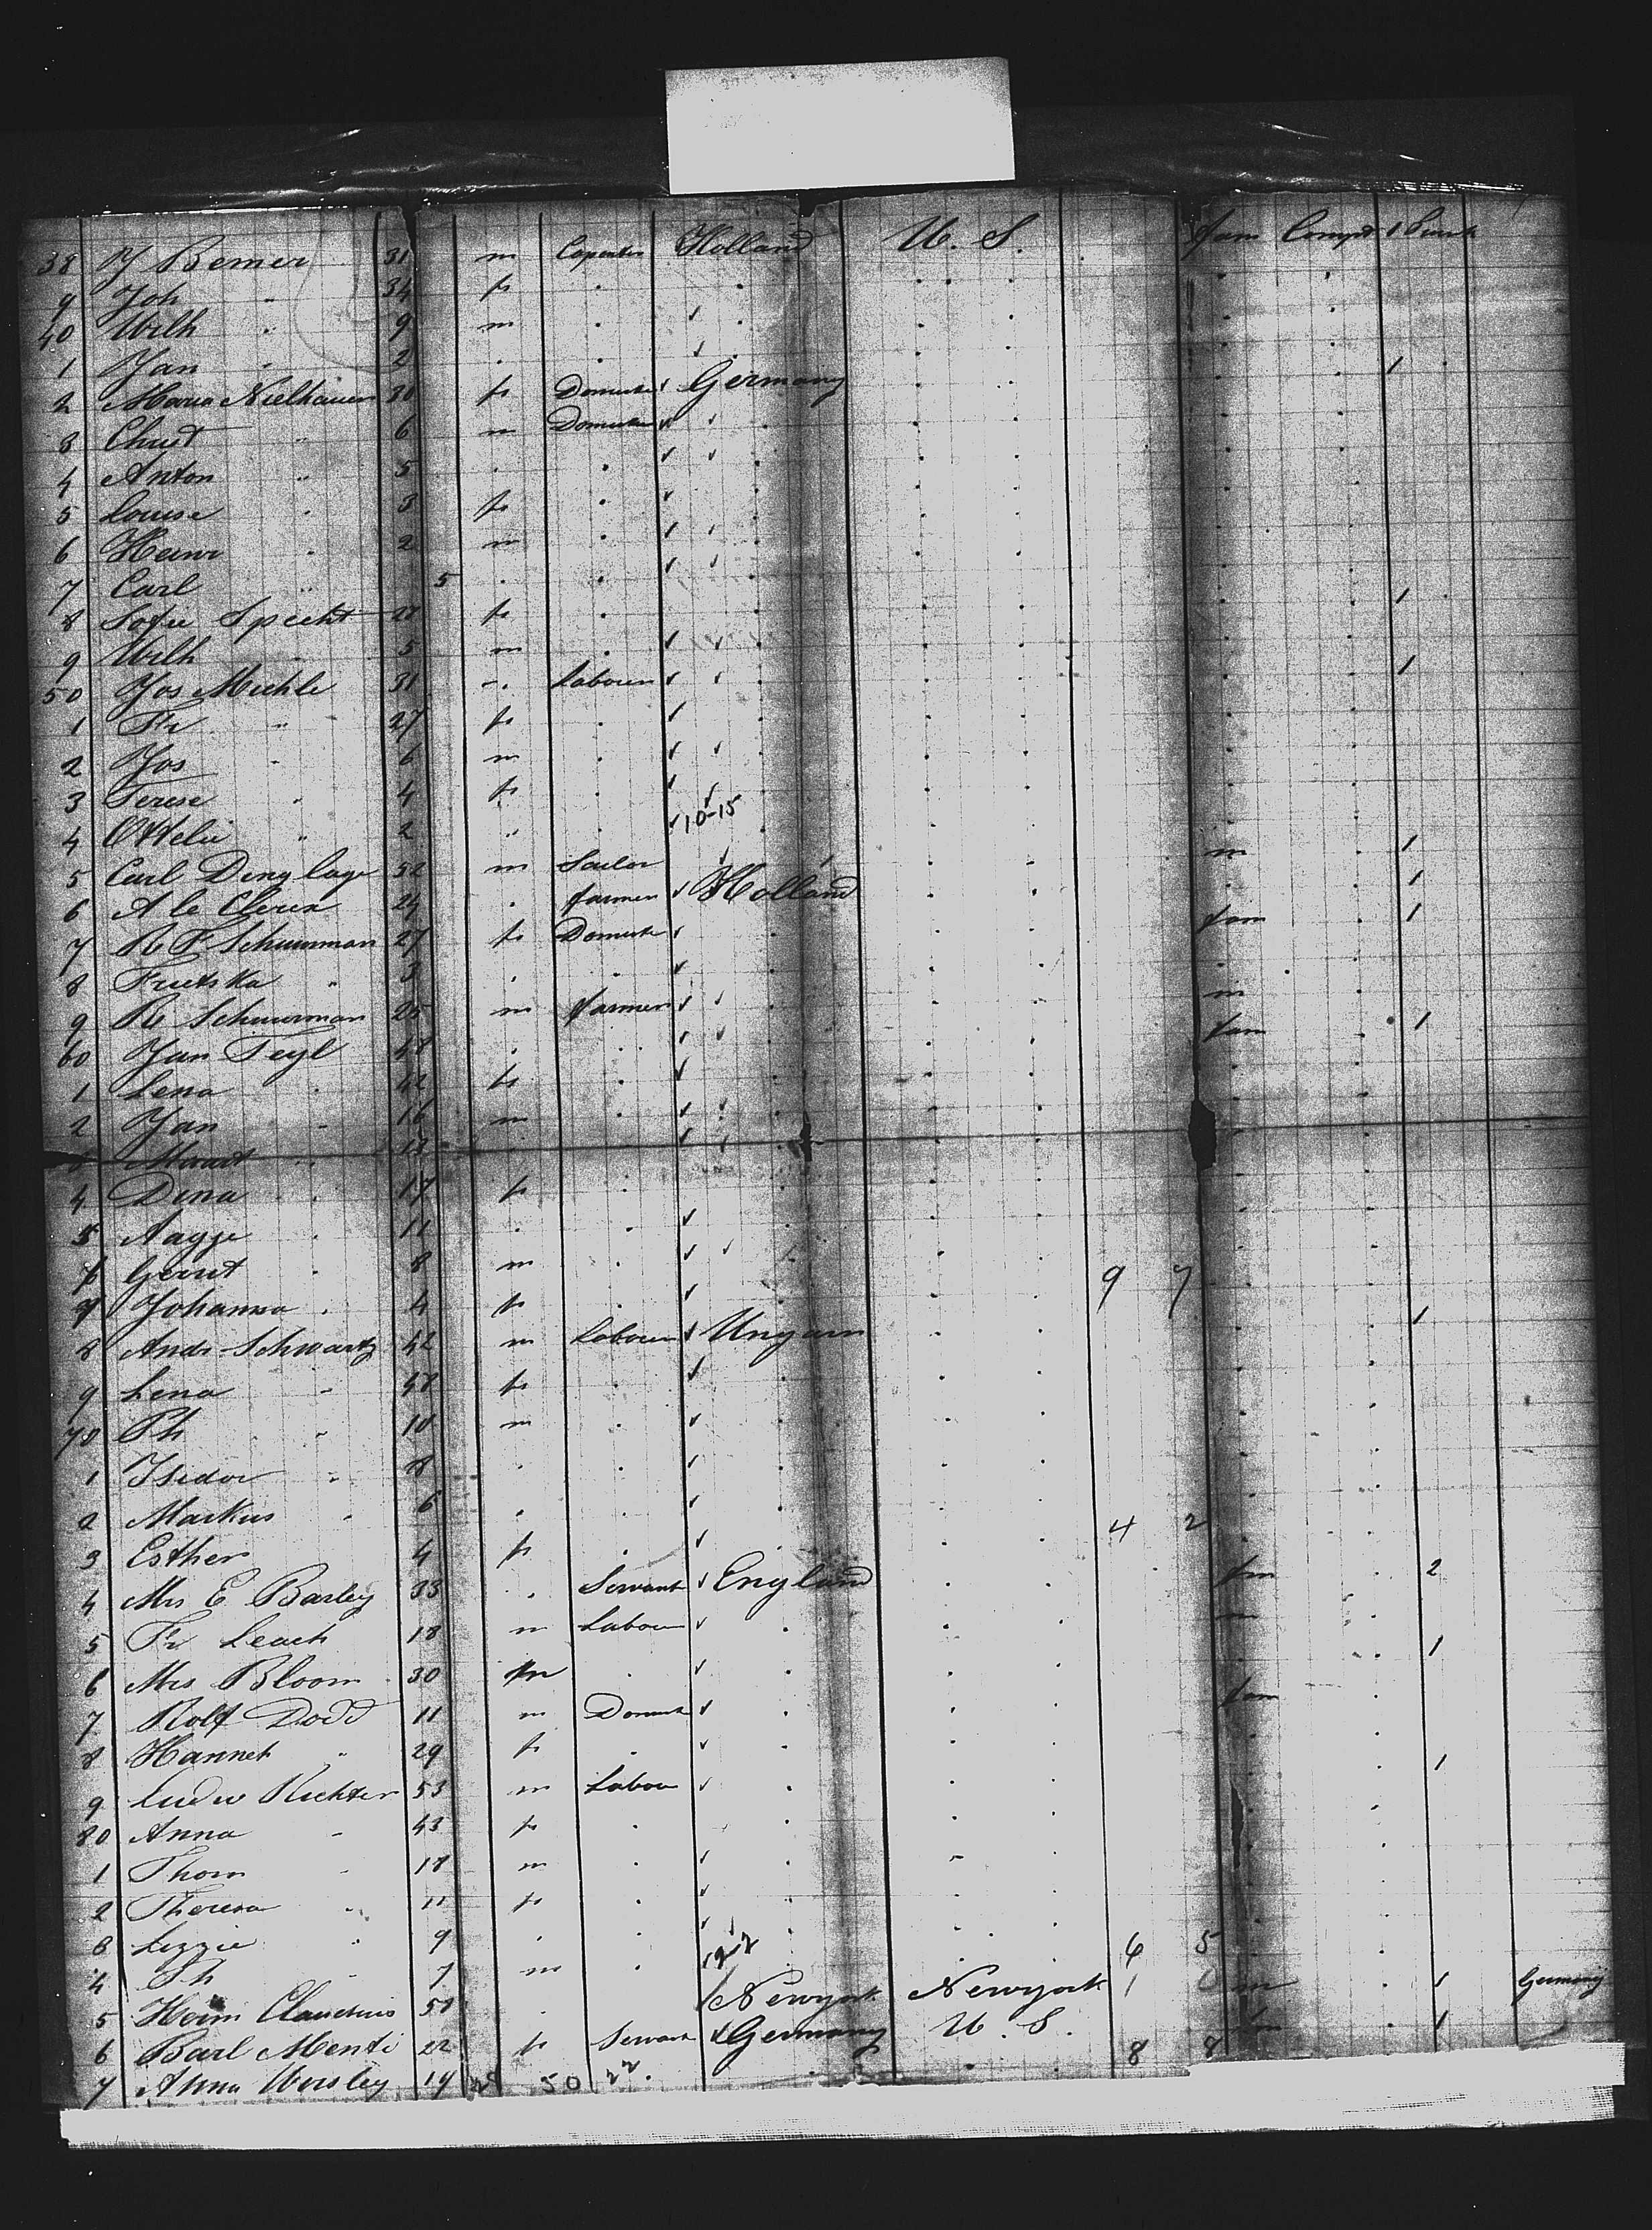 38 J Bemer 31 m Capenter Holland U. S. fam Compt 1 Trunk
9 Joh " 34 f
40 Wilh " 9 m
1 Jan " 2
2 Maria Nielhauer 30 f Domestic Germany 1
3 Christ " 6 m Domestic
4 Anton " 5
5 Louise " 3 f
6 Heinr " 2 m
7 Carl " 5
8 Sofie Specht 28 f 1
9 Wilh " 5 m
50 Jos Miehle 31 Labourer 1
1 Fr " 27 f
2 Jos " 6 m
3 Terese " 4 f
4 Ottelie " 2 " 10-15
5 Carl Dinglage 52 m Sailor m 1
6 A le Clerex 24 farmer Holland 1
7 R F Schuurman 27 f Domestic fam 1
8 Frietska " 3
9 R Schuurman 25 m farmer m
60 Jan Teyl 48 fam 1
1 Lena 42 f
2 Jan 16 m
3 13
4 Dina 17 f
5 Aagje 11
6 Gerrit 8 m
7 Johanna 4 f 9 7
8 Andr Schwartz 42 m Labourer Ungarn 1
9 Lena " 48 f
70 Ph " 10 m
1 Isidor " 8
2 Markus " 6
3 Esther 4 f 4 2
4 Mrs E Barley 33 Servant England fm 2
5 Fr Leach 18 m Labour m
6 Mrs Bloom 30 1
7 Rolf Dodd 11 m Domestic fam
8 Hannet " 29 f
9 Ludw Richter 53 m Labour 1
80 Anna " 43 f
1 Thom " 18 m
2 Theresa " 11 f
3 Lizzie " 9
4 Th " 7 m 6 5
5 Heinr Claudius 50 Newyork Newyork 1 m 1 Germany
6 Barl Menti 22 f Servant Germany U. S. 1
7 Anna Worsley 19 50 8 8